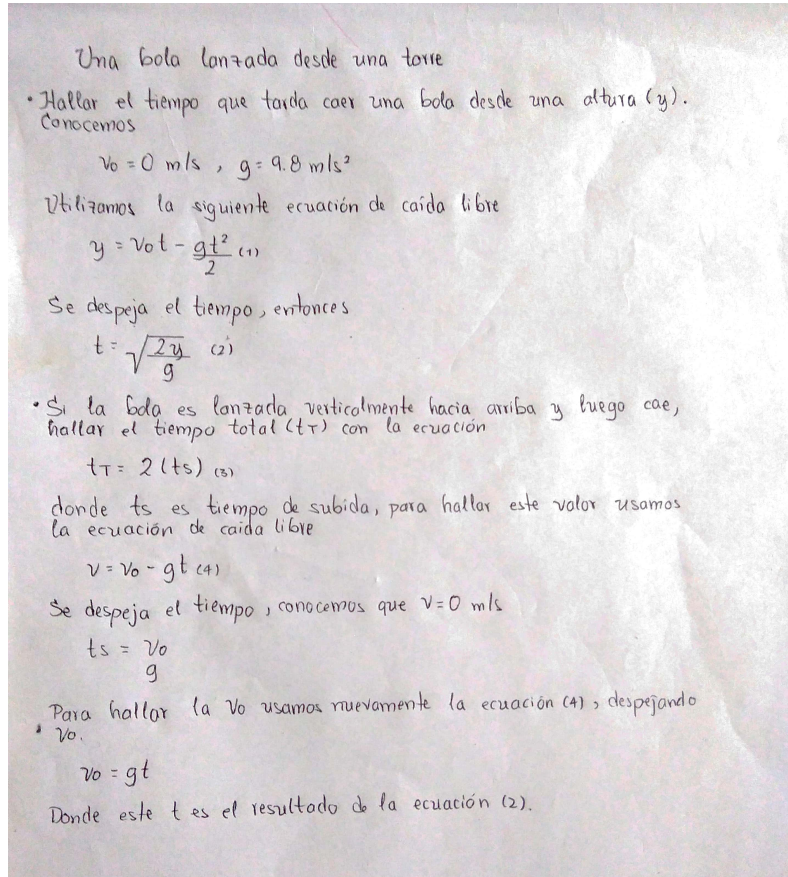 Una bola lanzada desde una torre
• Hallar el tiempo que tarda caer una bola desde una altura (y).
Conocemos
v₀ = 0 m/s , g = 9.8 m/s²
Utilizamos la siguiente ecuación de caída libre
y = v₀t - gt²/2 (1)
Se despeja el tiempo, entonces
t = √(2y/g) (2)
• Si la bola es lanzada verticalmente hacia arriba y luego cae,
hallar el tiempo total (tT) con la ecuación
tT = 2(ts) (3)
donde ts es tiempo de subida, para hallar este valor usamos
la ecuación de caida libre
v = v₀ - gt (4)
Se despeja el tiempo, conocemos que v=0 m/s
ts = v₀
g
Para hallar la v₀ usamos nuevamente la ecuación (4), despejando
• v₀.
v₀ = gt
Donde este t es el resultado de la ecuación (2).